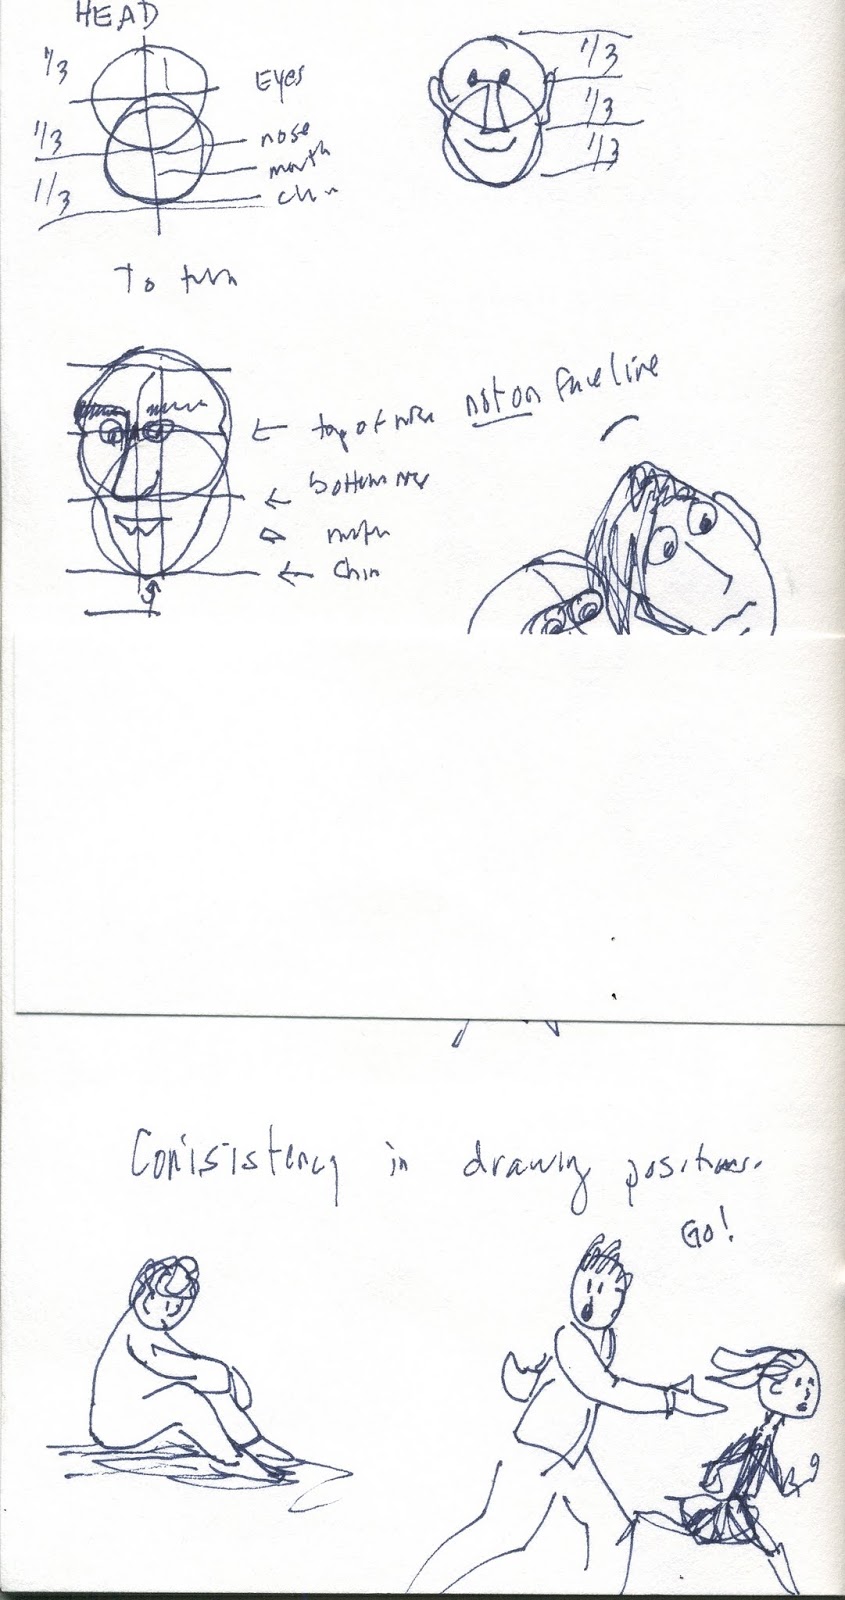 HEAD
1/3
Eyes
1/3
nose
mouth
1/3
chin
1/3
1/3
1/3
To turn
top of nose not on face line
bottom nose
mouth
chin
Consistency in drawing positions.
GO!